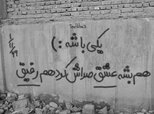 یکی باشه :)
هم بشه عشق صداش کرد هم رفیق